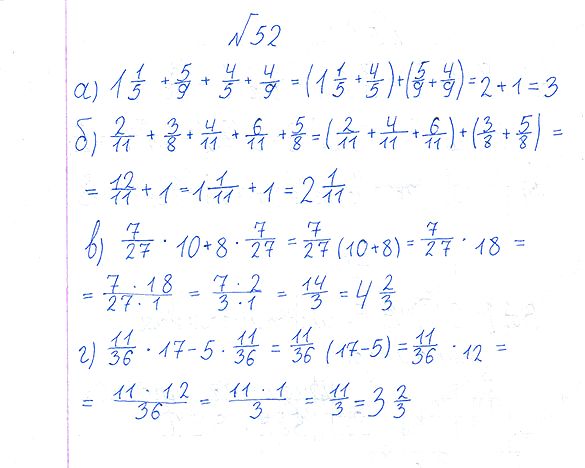 №52
а) 1 1/5 + 5/9 + 4/5 + 4/9 = (1 1/5 + 4/5) + (5/9 + 4/9) = 2 + 1 = 3
б) 2/11 + 3/8 + 4/11 + 6/11 + 5/8 = (2/11 + 4/11 + 6/11) + (3/8 + 5/8) =
= 12/11 + 1 = 1 1/11 + 1 = 2 1/11
в) 7/27 · 10 + 8 · 7/27 = 7/27 (10 + 8) = 7/27 · 18 =
= 7 · 18/27 · 1 = 7 · 2/3 · 1 = 14/3 = 4 2/3
г) 11/36 · 17 - 5 · 11/36 = 11/36 (17 - 5) = 11/36 · 12 =
= 11 · 12/36 = 11 · 1/3 = 11/3 = 3 2/3